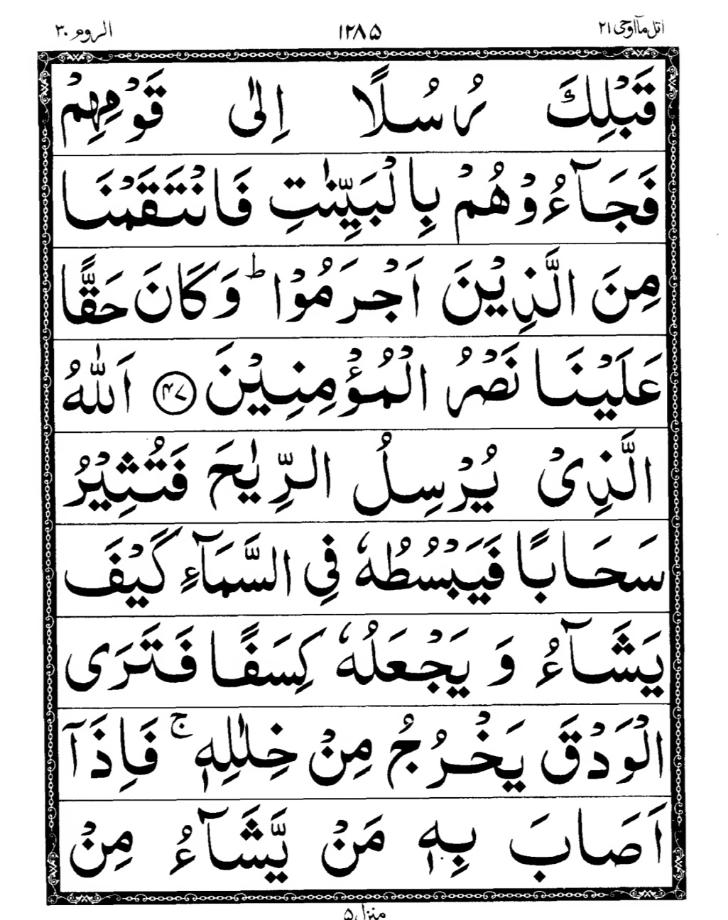 اتل مآاوحی ۲۱ ۱۲۸۵ الروم ۳۰
قَبْلِكَ رُسُلًا اِلٰى قَوْمِهِمْ
فَجَآءُوْهُمْ بِالْبَيِّنٰتِ فَانْتَقَمْنَا
مِنَ الَّذِيْنَ اَجْرَمُوْا ؕ وَكَانَ حَقًّا
عَلَيْنَا نَصْرُ الْمُؤْمِنِيْنَ ﴿۴۷﴾ اَللّٰهُ
الَّذِىْ يُرْسِلُ الرِّيٰحَ فَتُثِيْرُ
سَحَابًا فَيَبْسُطُهٗ فِى السَّمَآءِ كَيْفَ
يَشَآءُ وَ يَجْعَلُهٗ كِسَفًا فَتَرَى
الْوَدْقَ يَخْرُجُ مِنْ خِلٰلِهٖ ۚ فَاِذَآ
اَصَابَ بِهٖ مَنْ يَّشَآءُ مِنْ
منزل ۵